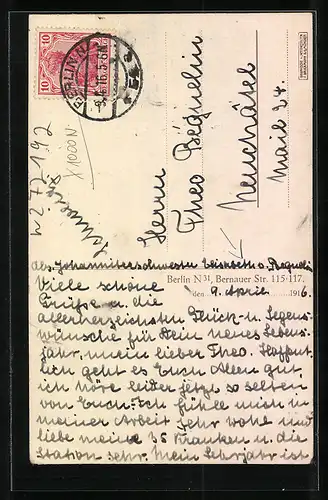 10 10
BERLIN
N272192
X1000N
Schweiz
Herrn
Theo Béguelin
Neuchâtel
Mail 24.
Abs. Johanniterschwester Elisabeth v. Beguelin
Berlin N 31, Bernauer Str. 115-117.
den 9. April 1916.
Viele schöne
Grüsse u. die
allerherzlichsten Glück- u. Segens-
wünsche für Dein neues Lebens-
jahr, mein lieber Theo. Hoffent-
lich geht es Euch Allen gut,
ich höre leider jetzt so selten
von Euch. Ich fühle mich in
meiner Arbeit sehr wohl und
liebe meine 35 Kranken u. die
Station sehr. Mein Lehrjahr ist